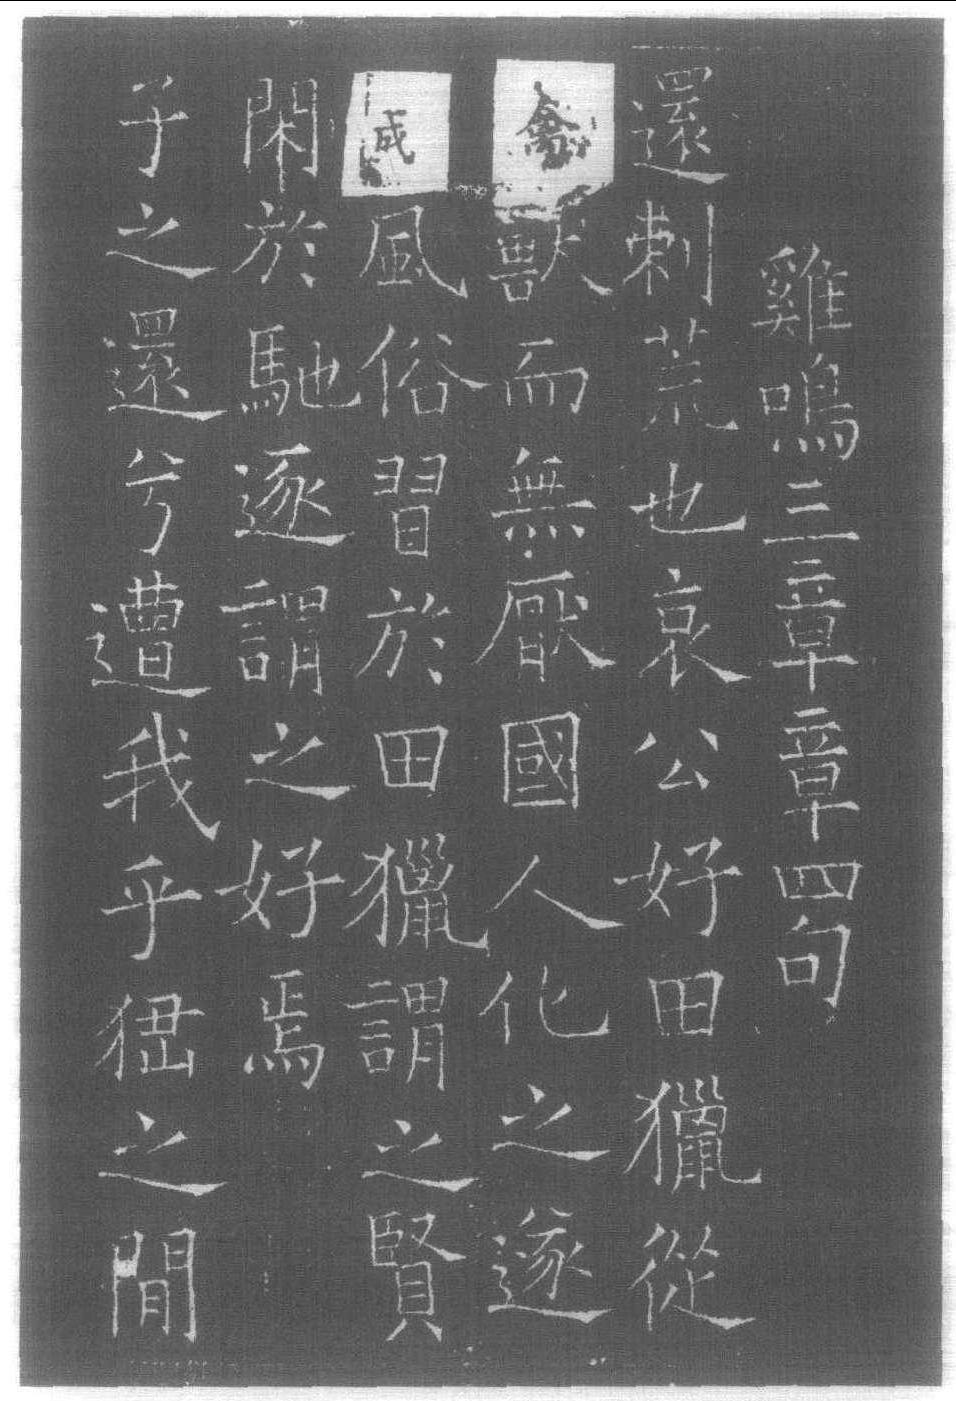 雞鳴三章章四句
還刺荒也哀公好田獵從
禽獸而無厭國人化之遂
成風俗習於田獵謂之賢
閑於馳逐謂之好焉
子之還兮遭我乎峱之閒